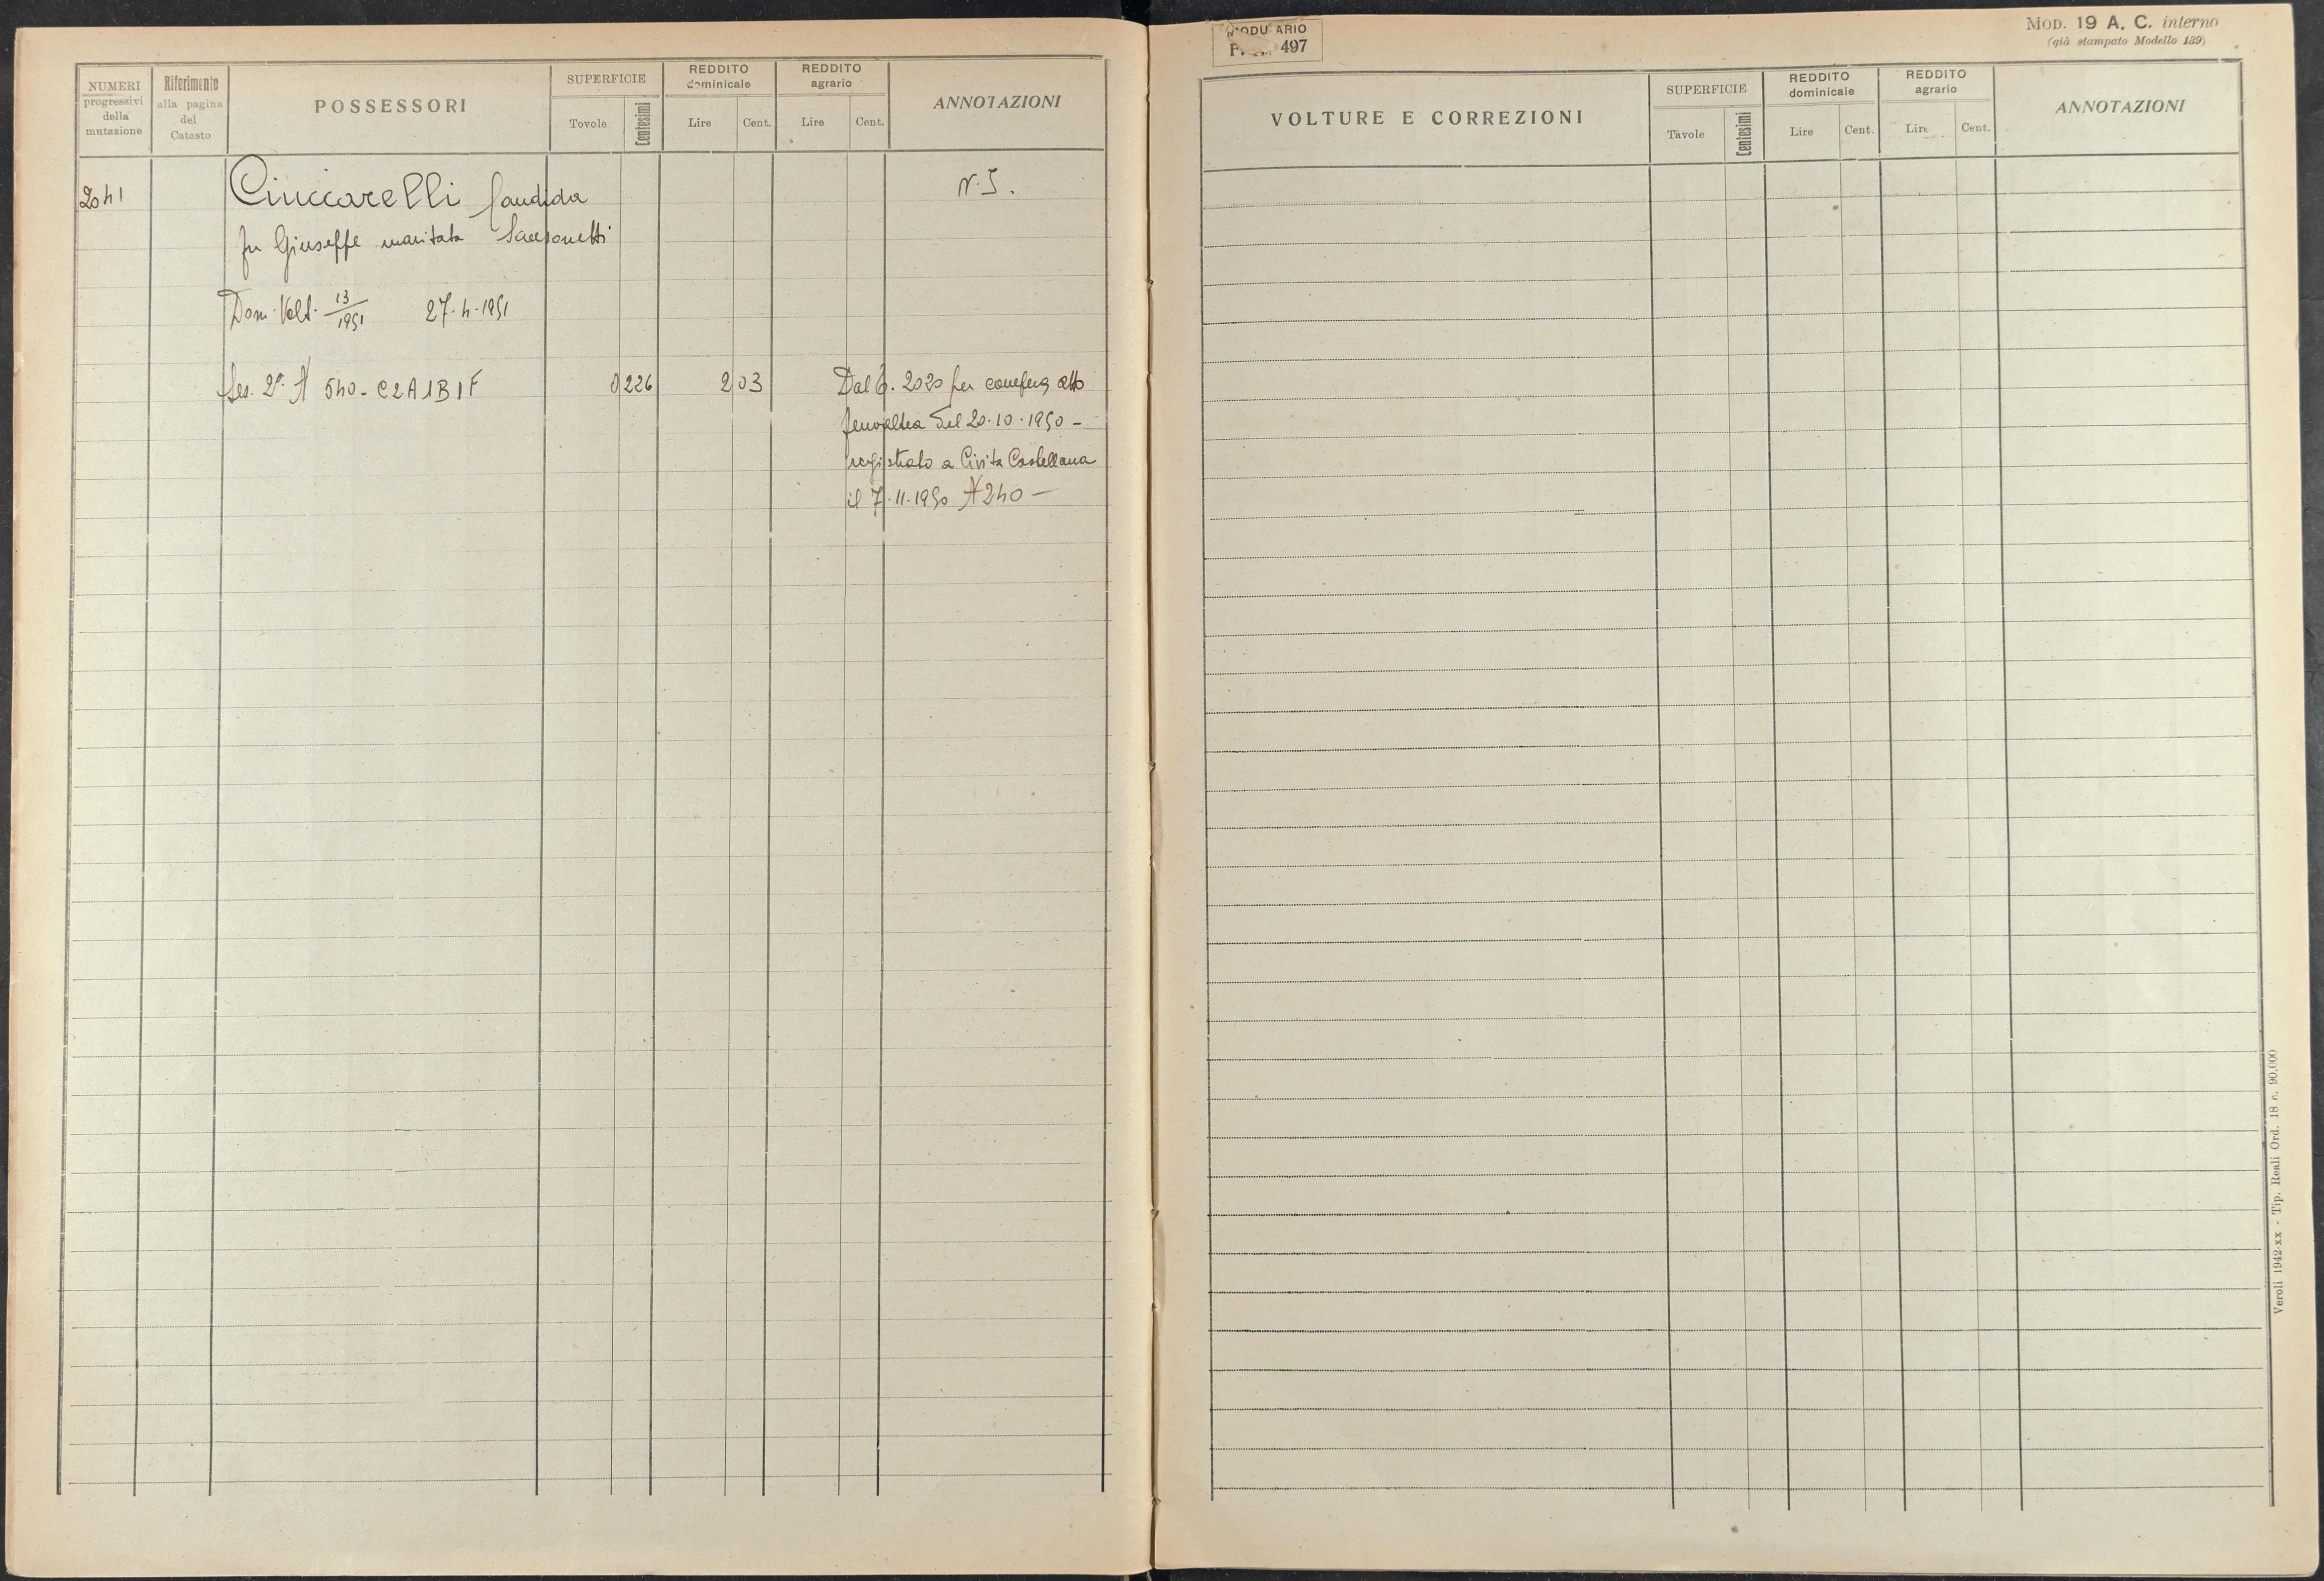 NUMERI
progressivi
della
mutazione
Riferimento
alla pagina
del
Catasto
POSSESSORI
SUPERFICIE
Tovole
Centesimi
REDDITO
dominicale
Lire
Cent.
REDDITO
agrario
Lire
Cent.
ANNOTAZIONI
2041
Cinccarelli Candida
fu Giuseppe maritata
N. 5.
Dom. Volt. 13/1951 27.4.1951
Sez. 2ª N 540 - C2A1B1F
0 226
2 03
Dal 6. 2020 per compera atto
del 20.10.1950 -
registrato a Civita Castellana
il 7.11.1950 N 240 -
MODULARIO
497
MOD. 19 A. C. interno
(già stampato Modello 139)
VOLTURE E CORREZIONI
SUPERFICIE
Tavole
Centesimi
REDDITO
dominicale
Lire
Cent.
REDDITO
agrario
Lire
Cent.
ANNOTAZIONI
Veroli 1942-XX - Tip. Reali Ord. 18 c. 90,000